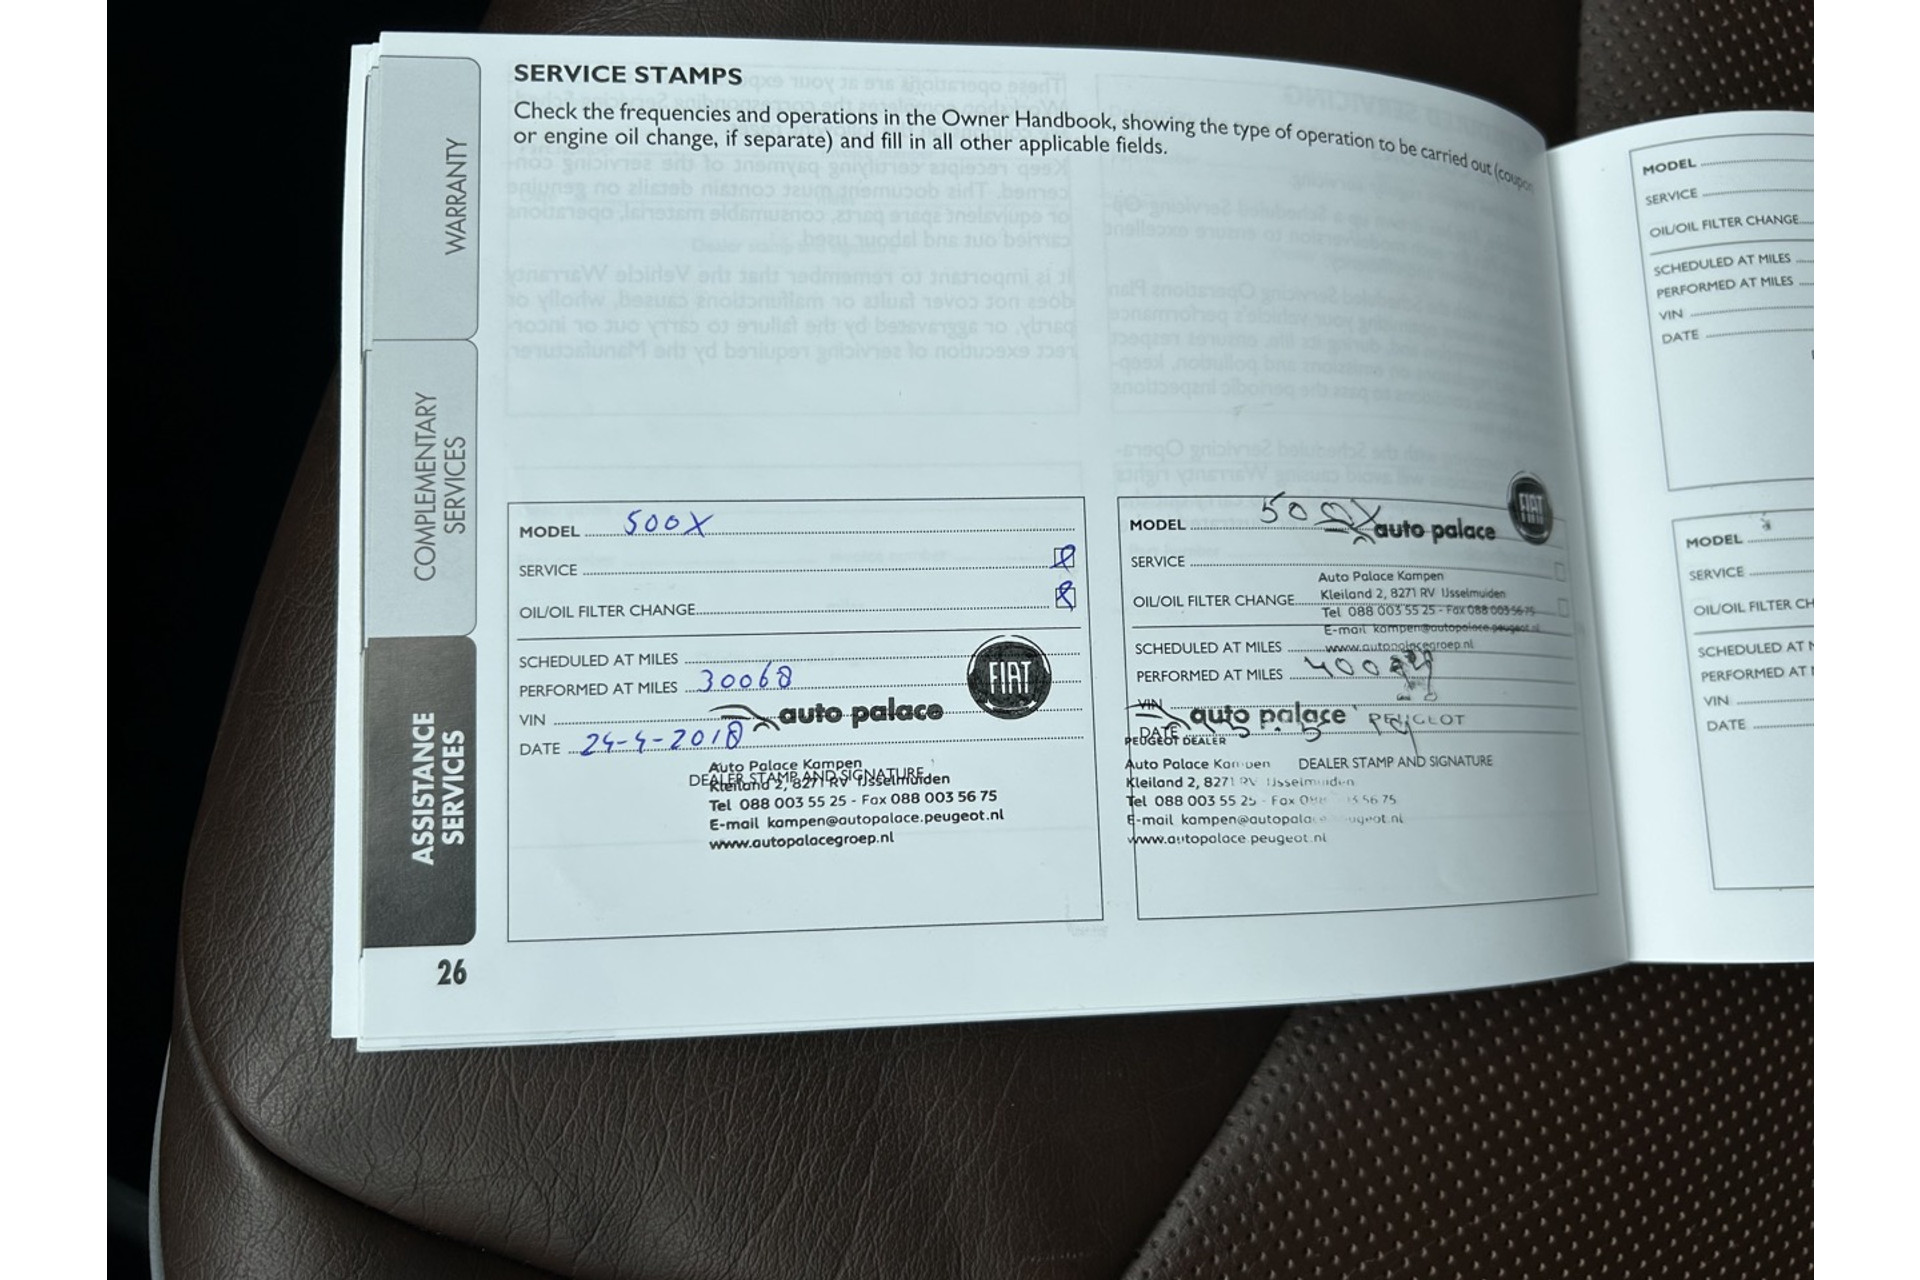 SERVICE STAMPS
Check the frequencies and operations in the Owner Handbook, showing the type of operation to be carried out (coupon
or engine oil change, if separate) and fill in all other applicable fields.
WARRANTY
COMPLEMENTARY
SERVICES
ASSISTANCE
SERVICES
26
MODEL 500X
SERVICE
OIL/OIL FILTER CHANGE
SCHEDULED AT MILES
PERFORMED AT MILES 30068
VIN
DATE 24-4-2018
FIAT
auto palace
DEALER STAMP AND SIGNATURE
Auto Palace Kampen
Kleiland 2, 8271 RV IJsselmuiden
Tel 088 003 55 25 - Fax 088 003 56 75
E-mail kampen@autopalace.peugeot.nl
www.autopalacegroep.nl
MODEL 500X
FIAT
auto palace
SERVICE
Auto Palace Kampen
Kleiland 2, 8271 RV IJsselmuiden
OIL/OIL FILTER CHANGE
Tel 088 003 55 25 - Fax 088 003 56 75
E-mail kampen@autopalace.peugeot.nl
SCHEDULED AT MILES
www.autopalacegroep.nl
PERFORMED AT MILES
VIN
auto palace PEUGEOT
DATE
PEUGEOT DEALER
Auto Palace Kampen
DEALER STAMP AND SIGNATURE
Kleiland 2, 8271 RV IJsselmuiden
Tel 088 003 55 25 - Fax 56 75
E-mail kampen@autopalace.peugeot.nl
www.autopalace.peugeot.nl
MODEL
SERVICE
OIL/OIL FILTER CHANGE
SCHEDULED AT MILES
PERFORMED AT MILES
VIN
DATE
MODEL
SERVICE
OIL/OIL FILTER CH
SCHEDULED AT
PERFORMED AT
VIN
DATE